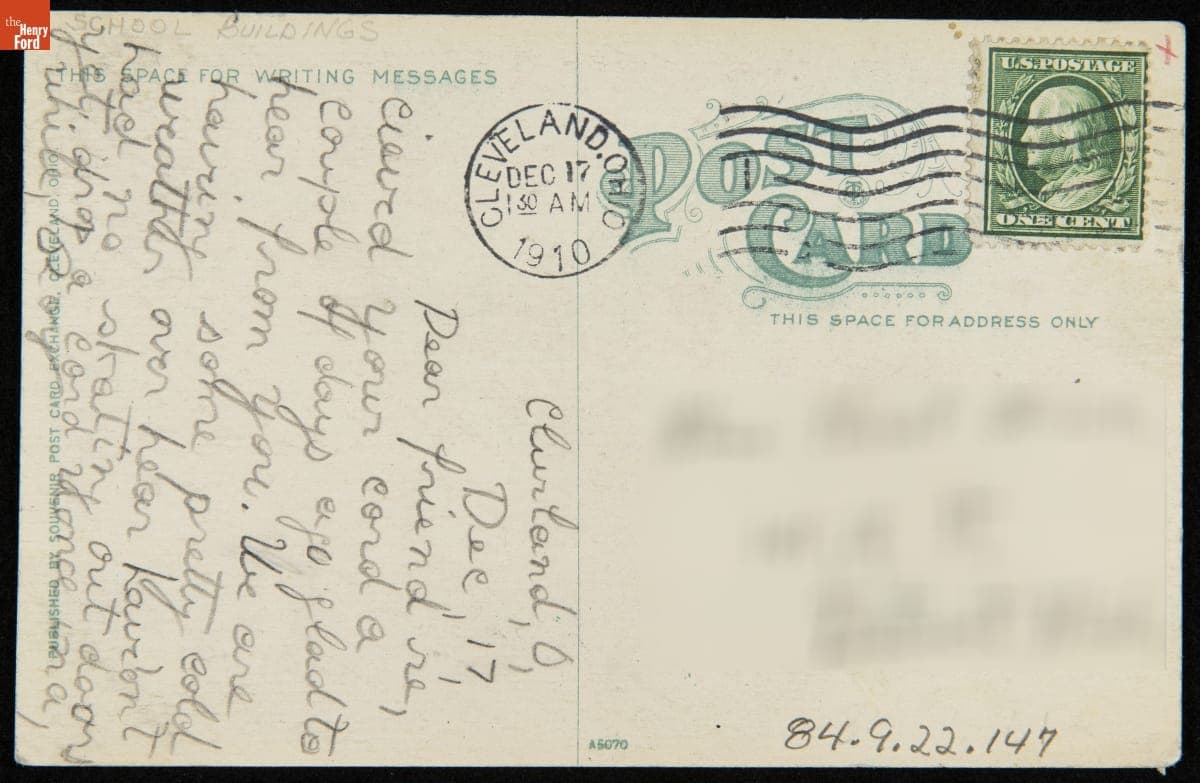 the
Henry
Ford
SCHOOL BUILDINGS
THIS SPACE FOR WRITING MESSAGES
Dec, 17,
Dear friend, re,
cieved your card a
couple of days ago glad to
hear from you. We are
having some pretty cold
weather over hear havent
had no skating out door
yet drop a card yonce in a,
while,
PUBLISHED BY SOUVENIR POST CARD EXCHANGE, CLEVELAND, OHIO
CLEVELAND, OHIO
DEC 17
1 30 AM
1910
U.S. POSTAGE
ONE CENT
POST
CARD
THIS SPACE FOR ADDRESS ONLY
A5070
84.9.22.147